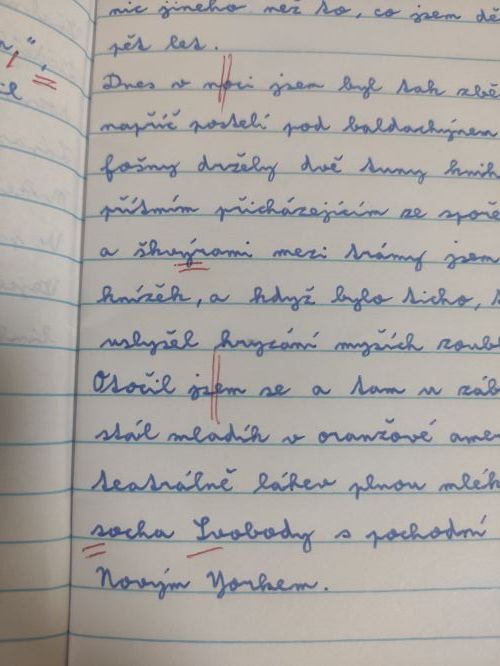 nic jiného než to, co jsem dě
pět let.
Dnes v noci jsem byl tak zbě
napříč postelí pod baldachýnem
fošny držely dvě tuny knih
přítmím přicházejícím ze spoře
a škvýrami mezi trámy jsem
knížek, a když bylo ticho,
uslyšel hryzání myších zoub
Otočil jsem se a tam u záb
stál mladík v oranžové amer
teatrálně láhev plnou mlék
socha Svobody s pochodní
Novým Yorkem.